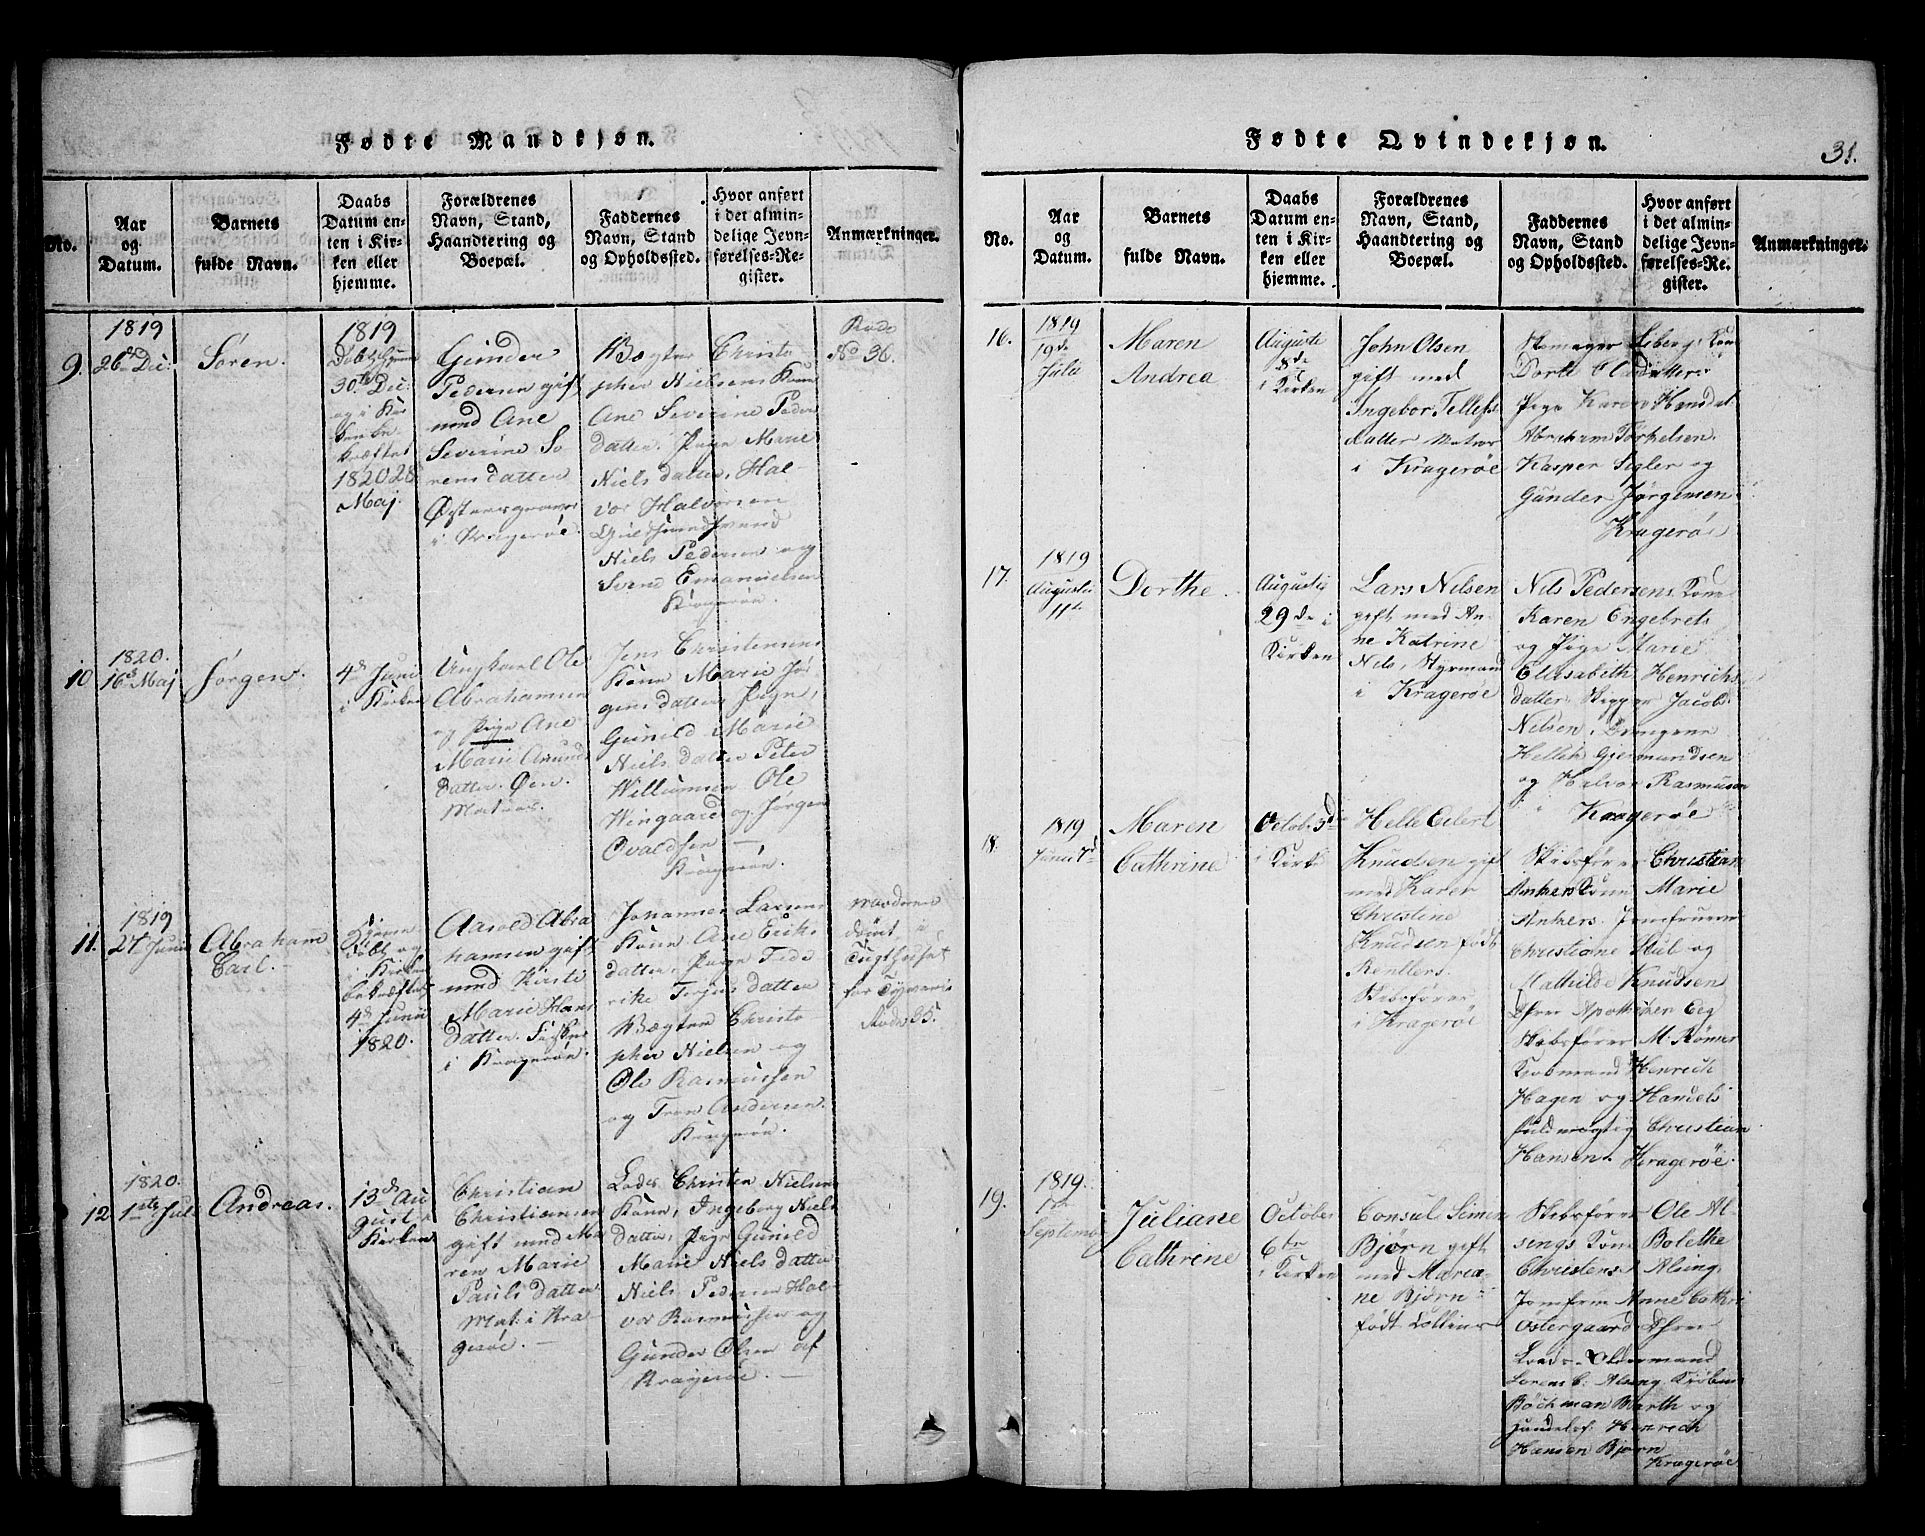 Fødte Mandkjøn.
No.
Aar
og
Datum.
Barnets
fulde Navn.
Daabs
Datum en-
ten i Kir-
ken eller
hjemme.
Forældrenes
Navn, Stand,
Haandtering og
Boepæl.
Faddernes
Navn, Stand
og Opholdssted.
Hvor anført
i det almin-
delige Jevn-
førelses-Re-
gister.
Anmærkninger.
9.
1819
26de Dec:
Søren.
1819
30te Dec:
og i Kir
ken be
kræftet
1820 28
Maj.
Gunder
Pedersen gift
med Ane
Severine So
rensdatter
i Kragerøe.
Vægter Christo
pher Nielsens Kone
Ane Severine Peder
datter. Pige Marie
Nielsdatter, Hal-
vor Halvorsen
Niels Pedersen og
Svend Emanuelsen
Kragerøe.
Rode
No 36.
10
1820.
16d Maj
Jørgen.
4de Junii
i Kirken
Ungkarl Ole
Abrahamsen
og Pige Ane
Marie Amunds
datter. Øen.
Matros.
Jens Christensens
Kone Marie Jør
gensdatter, Pigen,
Gunild Marie
Nielsdatter Peter
Willumsen Ole
Wingaard og Jørgen
Ovaldsen —
Kragerøe.
11.
1819
27 Junii
Abraham
Carl. —
Hjemme
døbt og
i Kirken
bekræftet
4de Junii
1820.
Aasold Abra
hamsen gift
med Kirste
Marie Hans
datter. Fisker
i Kragerøe.
Johannes Larsens
Kone Ane Eriks
datter, Pigen Fede
rike Terjesdatter
Vægter Christo
pher Nielsen og
Ole Rasmussen
og Tron Andersen.
Kragerøe.
dømt i
Tugthuset
for Tyveri
Rode 35.
12
1820.
1ste Jul
Andreas.
13de Au
gust i
Kirken
Christian
Christiansen
gift med Ma
ren Marie
Paulsdatter
Mat: i Kra
gerøe. —
Lods Christen Nielsens
Kone, Ingeborg Niels
datter, Pige Gunild
Marie Nielsdatter
Niels Pedersen Hal-
vor Rasmussen og
Gunder Olsen af
Kragerøe. —
Fødte Qvindekjøn.
31.
No.
Aar
og
Datum.
Barnets
fulde Navn.
Daabs
Datum en-
ten i Kir-
ken eller
hjemme.
Forældrenes
Navn, Stand,
Haandtering og
Boepæl.
Faddernes
Navn, Stand
og Opholdssted.
Hvor anført
i det almin-
delige Jevn-
førelses-Re-
gister.
Anmærkninger.
16.
1819
19de
Julii
Maren
Andrea
Auguste
8de
i Kirken
John Olsen
gift med
Ingebor Tellefs
datter Matros
i Kragerøe
Skomager Siberg, Kone
Dorte Olsdatter
Pige Karen Hansdat
Abraham Torkelsen.
Kasper Sigler og
Gunder Jørgensen
Kragerøe
17.
1819
Augustii
11te
Dorthe.
Augustij
29de i
Kirken
Lars Nilsen
gift med An-
ne Katrine
Nils, Styrmand
i Kragerøe
Nils Pedersens Kone
Karen Engebrets
og Pige Marie
Elisabeth Henrichs
datter, Skipper Jacob
Nilsen,
Gjermundsen
og Halvor Rasmusen
i Kragerøe
18.
1819
Junii 7d
Maren
Cathrine
Octob: 3d
i Kirke
Helle Eilert
Knudsen gift
med Karen
Christine
Knudsen født
Skibsfører
i Kragerøe
Skibsfører Christian
Ankers Kone Marie
Ankers. Jomfruerne
Christiane Stub og
Mathilde Knudsen
Dhrr Apotheker Eeg
Skibsfører M. Rømer
Kiøbmand Henrich
Hagen og Handels
fuldmægtig Christian
Hansen. Kragerøe.
19.
1819.
1te
September
Juliane
Cathrine
October
6te
i Kirken
Consul Simon
Bjørn gift
med Maria-
ne Bjørn
født
Skibsfører Ole Al-
sings Kone Bolethe
Christens Alsing,
Jomfrue Anne Cathri
Ostergaard Dhrer
Lods-Oldermand
Lorens C: Alsing Kiøbm
Bøckman Barth og
Henrich
Hansen Bjørn
Kragerøe